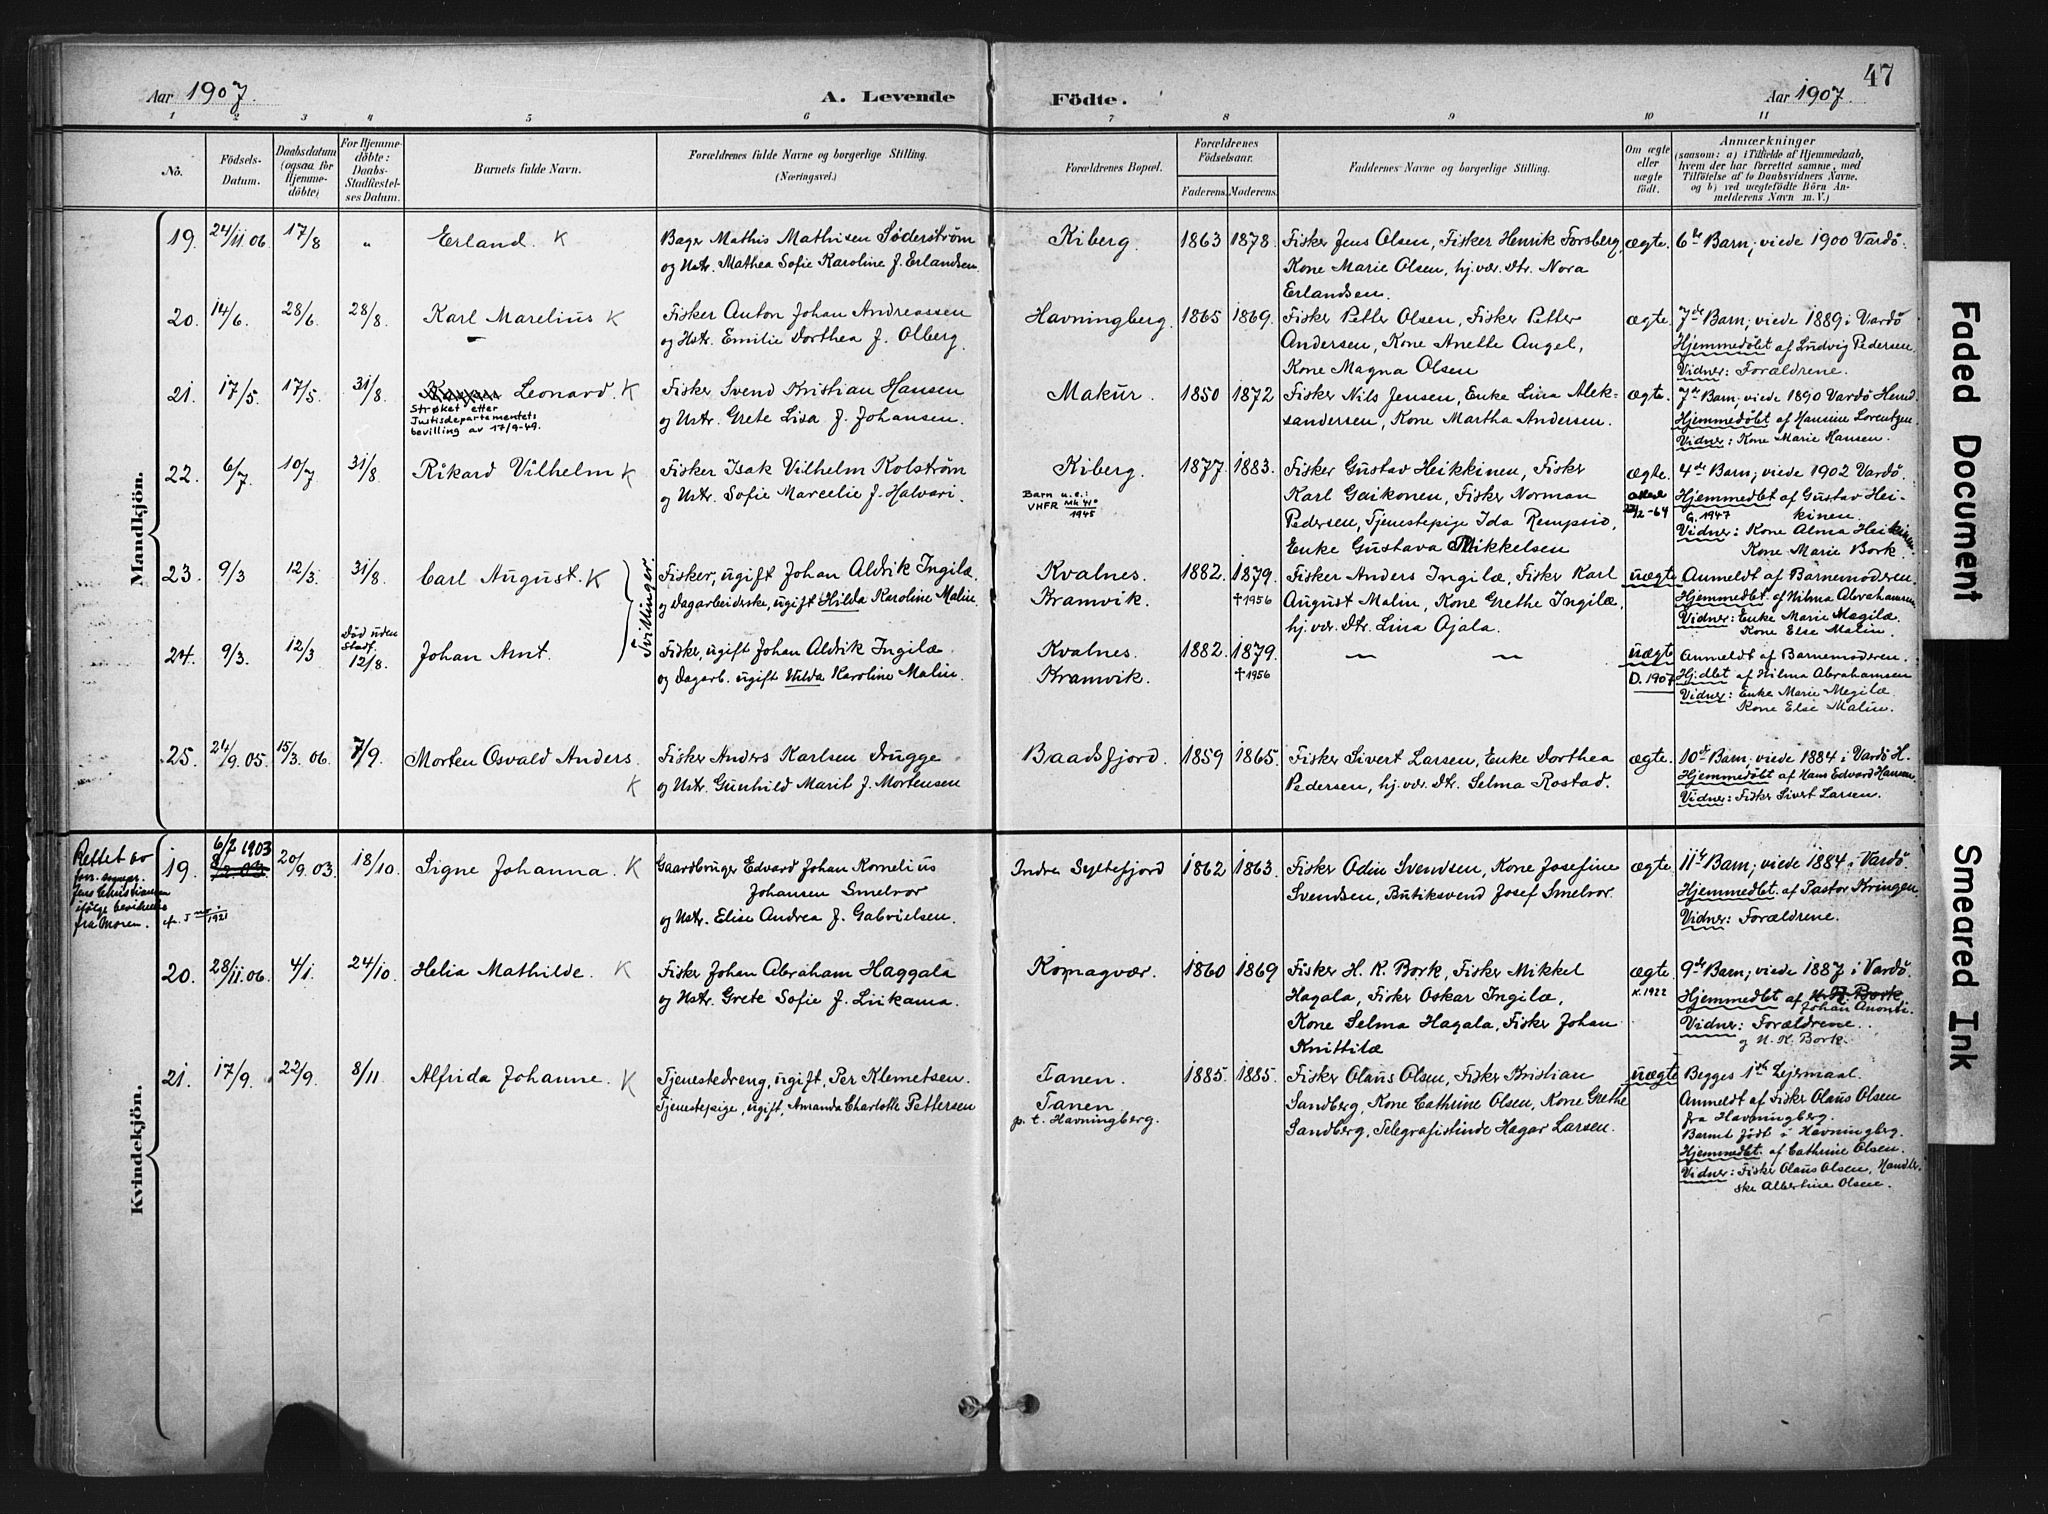 47
Aar 1907. A. Levende Födte. Aar 1907.
1 2 3 4 5 6 7 8 9 10 11
No.
Födsels-
Datum.
Daabsdatum
(ogsaa for
Hjemme-
döbte)
For Hjemme-
döbte:
Daabs-
Stadfæstel-
ses Datum.
Barnets fulde Navn.
Forældrenes fulde Navne og borgerlige Stilling.
(Næringsvei.)
Forældrenes Bopæl.
Forældrenes
Födselsaar.
Faderens. Moderens.
Faddernes Navne og borgerlige Stilling.
Om ægte
eller
uægte
født.
Anmærkninger
(saasom: a) i Tilfælde af Hjemmedaab,
hvem der har forrettet samme, med
Tilföielse af to Daabsvidners Navne.
og b) ved uægtefödte Börn An-
melderens Navn m. V.)
Mandkjön.
19. 24/11 06 17/8 „ Erland. K
Bager Mathis Mathisen Söderström
og Hstr. Mathea Sofie Karoline f. Erlandsen.
Kiberg. 1863 1878.
Fisker Jens Olsen, Fisker Henrik Forsberg,
Kone Marie Olsen, hj. vær. Dtr. Nora
Erlandsen.
ægte. 6te Barn; viede 1900 Vardö.
20. 14/6. 28/6 28/8 Karl Marelius K
Fisker Anton Johan Andreassen
og Hstr. Emilie Dorthea f. Olberg.
Havningberg. 1865 1869.
Fisker Petter Olsen, Fisker Petter
Andersen, Kone Anette Angel,
Kone Magna Olsen
ægte. 7de Barn; viede 1889 i Vardö
Hjemmedöbt af Ludvig Pedersen.
Vidner: Forældrene.
21. 17/5. 17/5. 31/8. Leonard. K
Strøket etter
Justisdepartementets
bevilling av 17/9-49.
Fisker Svend Kristian Hansen
og Hstr. Grete Lisa f. Johansen.
Makur. 1850 1872
Fisker Nils Jensen, Enke Lina Alek-
sandersen, Kone Martha Andersen.
ægte. 7de Barn, viede 1890 Vardö
Hjemmedöbt af Hansine Lorentzen.
Vidner: Kone Marie Hansen.
22. 6/7. 10/7 31/8. Rikard Vilhelm K
Fisker Isak Vilhelm Kolström
og Hstr. Sofie Marcelie f. Halvari.
Kiberg. 1877. 1883.
Barn u.e.:
VHFR 1945
Fisker Gustav Heikkinen, Fisker
Karl Gaikonen, Fisker Norman
Pedersen, Tjenestepige Ida Rempsio,
Enke Gustava Mikkelsen
ægte. 4de Barn; viede 1902 Vardö.
Hjemmedbt af Gustav Hei-
G. 1947 kinen.
Vidner: Kone Alma Heikinen.
Kone Marie Bork
23. 9/3 12/3. 31/8. Carl August. K
Tvillinger.
Fisker, ugift Johan Aldrik Ingilæ.
og Dagarbeiderske, ugift Hilda Karoline Malin.
Kvalnes. 1882. 1879.
Kramvik. †1956
Fisker Anders Ingilæ, Fisker Karl
August Malin, Kone Grethe Ingilæ,
hj. vær. Dtr. Lina Ojala.
uægte Anmeldt af Barnemoderen.
Hjemmedbt. af Hilma Abrahamsen
Vidner: Enke Marie Megilæ.
Kone Else Malin.
24. 9/3. 12/3 Död uden
Stadf.
12/8. Johan Arnt.
Fisker, ugift Johan Aldrik Ingilæ.
og Dagarb. ugift Hilda Karoline Malin.
Kvalnes. 1882. 1879.
Kramvik. †1956
— —
uægte
D. 1907
Anmeldt af Barnemoderen.
Hj.dbt af Hilma Abrahamsen
Vidner: Enke Marie Megilæ.
Kone Else Malin.
25. 24/9. 05. 15/3. 06. 7/9. Morten Osvald Anders.
K
Fisker Anders Karlsen Drugge
og Hstr. Gunhild Marit f. Mortensen
Baadsfjord. 1859 1865.
Fisker Sivert Larsen, Enke Dorthea
Pedersen, hj. vær. Dtr. Selma Rostad.
ægte. 10de Barn; viede 1884 i Vardö H.
Hjemmedöbt af Hans Edvard Hansen.
Vidner: Fisker Sivert Larsen.
Kvindekjön.
Rettet av
Jens Christiansen
ifølge
fra Moren.
1921
19. 6/7 1903 20/9. 03. 18/10. Signe Johanna. K
Gaardbruger Edvard Johan Kornelius
Johansen Smelror
og Hstr. Elise Andrea f. Gabrielsen.
Indre Syltefjord 1862 1863.
Fisker Odin Svendsen, Kone Josefine
Svendsen, Butiksvend Josef Smelror.
ægte. 11te Barn; viede 1884 i Vardö
Hjemmedbt. af Pastor Kringen.
Vidner: Forældrene.
20. 28/11. 06. 4/1. 24/10. Helia Mathilde. K
Fisker Johan Abraham Haggala
og Hstr. Grete Sofie f. Liikama.
Komagvær. 1860 1869
Fisker H. K. Bork, Fisker Mikkel
Hagala, Fisker Oskar Ingilæ,
Kone Selma Hagala, Fisker Johan
Knittilæ
ægte.
K. 1922
9de Barn; viede 1887 i Vardö.
Hjemmedbt af H. K. Bork
Johan Anonti.
Vidner: Forældrene.
og H. K. Bork.
21. 17/9. 22/9. 8/11 Alfrida Johanne. K
Tjenestedreng, ugift, Per Klemetsen.
Tjenestepige, ugift, Amanda Charlotte Pettersen
Tanen. 1885. 1885.
Tanen.
p. t. Havningberg.
Fisker Olaus Olsen, Fisker Kristian
Sandberg, Kone Cathrine Olsen, Kone Grethe
Sandberg, Telegrafistinde Hagar Larsen.
uægte Begges 1ste Lejermaal.
Anmeldt af Fisker Olaus Olsen
fra Havningberg.
Barnet födt i Havningberg.
Hjemmedbt. af Cathrine Olsen.
Vidner: Fisker Olaus Olsen, Handler-
ske Albertine Olsen.
Faded Document
Smeared Ink